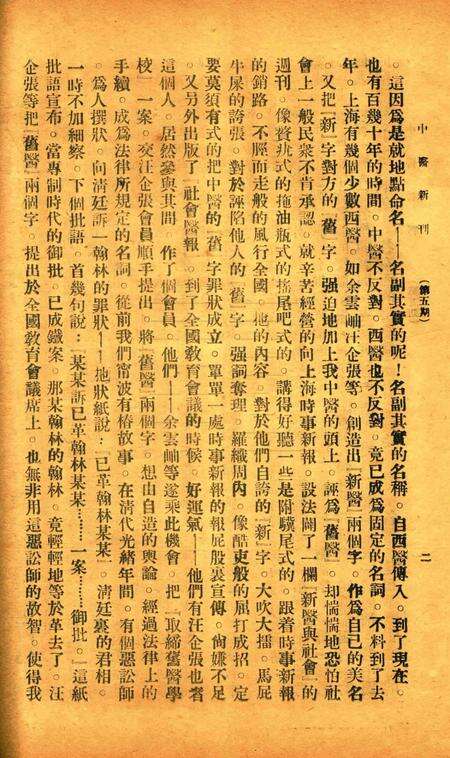 中醫新刊
（第五期）
二
。這因爲是就地點命名——名副其實的呢！名副其實的名稱。自西醫傳入。到了現在。
也有百幾十年的時間。中醫不反對。西醫也不反對。竟已成爲固定的名詞。不料到了去
年。上海有幾個少數西醫。如余雲岫汪企張等。創造出『新醫』兩個字。作爲自己的美名
。又把『新』字對方的『舊』字。强迫地加上我中醫的頭上。誣爲『舊醫』。却惴惴地恐怕社
會上一般民衆不肯承認。就辛苦經營的向上海時事新報。設法闢了一欄『新醫與社會』的
週刊。像贅疣式的拖油瓶式的搖尾吧式的。講得好聽一些是附驥尾式的。跟着時事新報
的銷路。不脛而走般的風行全國。他的內容。對於他們自誇的『新』字。大吹大擂。馬屁
牛屎的誇張。對於誣陷他人的『舊』字。强詞奪理。羅織周內。像酷吏般的屈打成招。定
要莫須有式的把中醫的『舊』字罪狀成立。單單一處時事新報的報屁股裏宣傳。尙嫌不足
。又另外出版了『社會醫報』。到了全國敎育會議的時候。好運氣——他們有汪企張也者
這個人。居然參與其間。作了個會員。他們——余雲岫等遂乘此機會。把『取締舊醫學
校』一案。交汪企張會員順手提出。將『舊醫』兩個字。想由自造的輿論。經過法律上的
手續。成爲法律所規定的名詞。從前我們甯波有椿故事。在清代光緖年間。有個惡訟師
。爲人撰狀。向清廷訴一翰林的罪狀——地狀紙說：『已革翰林某某』。清廷裏的君相。
一時不加細察。下個批語。首幾句說：『某某訴已革翰林某某………一案………御批。』這紙
批語宣布。當專制時代的御批。已成鐵案。那某翰林的翰林。竟輕輕地等於革去了。汪
企張等把『舊醫』兩個字。提出於全國敎育會議席上。也無非用這惡訟師的故智。使得我